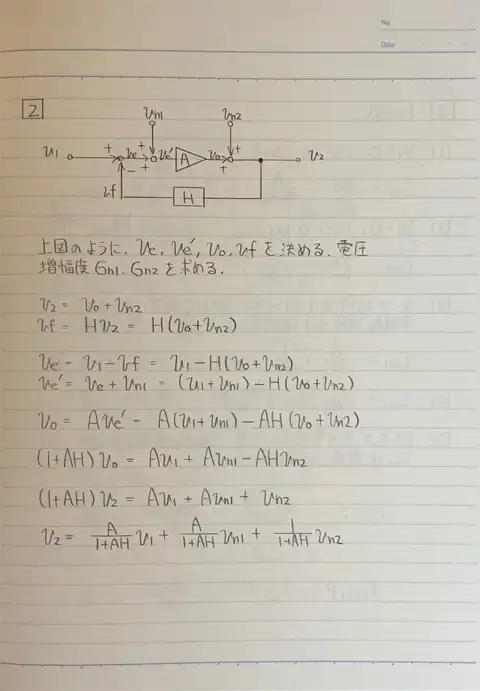 No.
Date
2
vn1 vn2
v1 + ve + ve' A vo + v2
− + +
vf H
上図のように, ve, ve', vo, vfを決める. 電圧
増幅度 Gn1, Gn2を求める.
v2 = vo + vn2
vf = Hv2 = H(vo+vn2)
ve = v1 − vf = v1 − H(vo+vn2)
ve' = ve + vn1 = (v1+vn1) − H(vo+vn2)
vo = Ave' = A(v1+vn1) − AH(vo+vn2)
(1+AH)vo = Av1 + Avn1 − AHvn2
(1+AH)v2 = Av1 + Avn1 + vn2
v2 = A/(1+AH) v1 + A/(1+AH) vn1 + 1/(1+AH) vn2